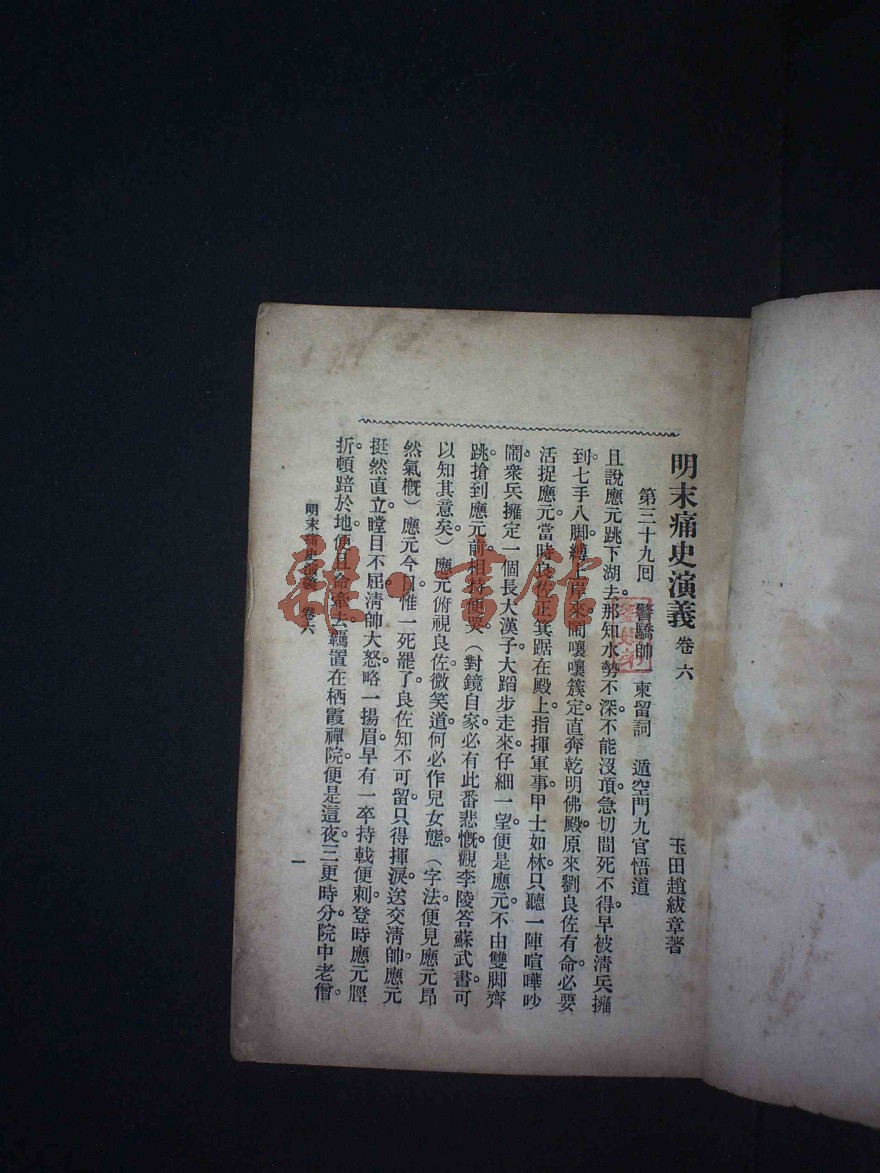 明末痛史演義 卷六
玉田趙紱章著
第三十九回 警驕帥一柬留詞 遁空門九官悟道
且說應元跳下湖去。那知水勢不深。不能沒頂。急切間死不得。早被淸兵擁
到。七手八脚。縛上岸來。鬧嚷嚷簇定。直奔乾明佛殿。原來劉良佐有命。必要
活捉應元。當時良佐正箕踞在殿上。指揮軍事。甲士如林。只聽一陣喧嘩吵
鬧。衆兵擁定一個長大漢子。大蹈步走來。仔細一望。便是應元。不由雙脚齊
跳。搶到應元前。相持便哭。(對鏡自家必有此番悲慨觀李陵答蘇武書可
以知其意矣)應元俯視良佐。微笑道。何必作兒女態。(字法便見應元昂
然氣槪)應元今日惟一死罷了。良佐知不可留。只得揮淚送交淸帥。應元
挺然直立。瞠目不屈。淸帥大怒。略一揚眉。早有一卒持戟便刺。登時應元脛
折。頓踣於地。便且命牽去。羈置在栖霞禪院。便是這夜三更時分。院中老僧。
明末痛史演義 卷六
一
雜·書館